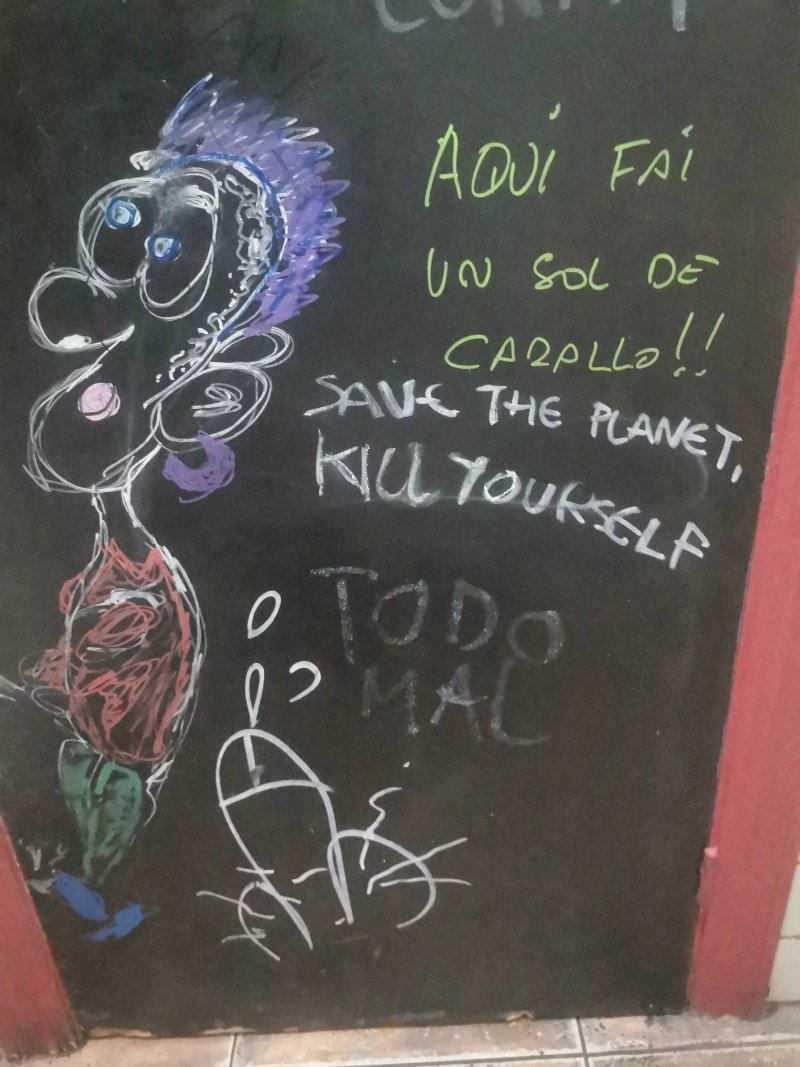 AQUÍ FAI
UN SOL DE
CARALLO!!
SAVE THE PLANET,
KILL YOURSELF
TODO
MAL